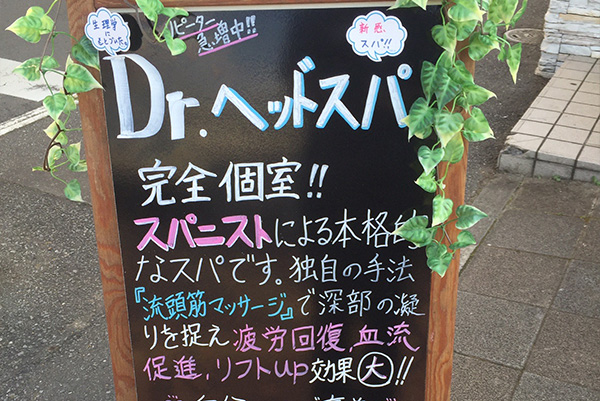 生理学に
もとづいた
リピーター
急増中!!
新感、
スパ!!
Dr.ヘッドスパ
完全個室!!
スパニストによる本格的
なスパです。独自の手法
『流頭筋マッサージ』で深部の凝
りを捉え疲労回復、血流
促進、リフトup効果大!!